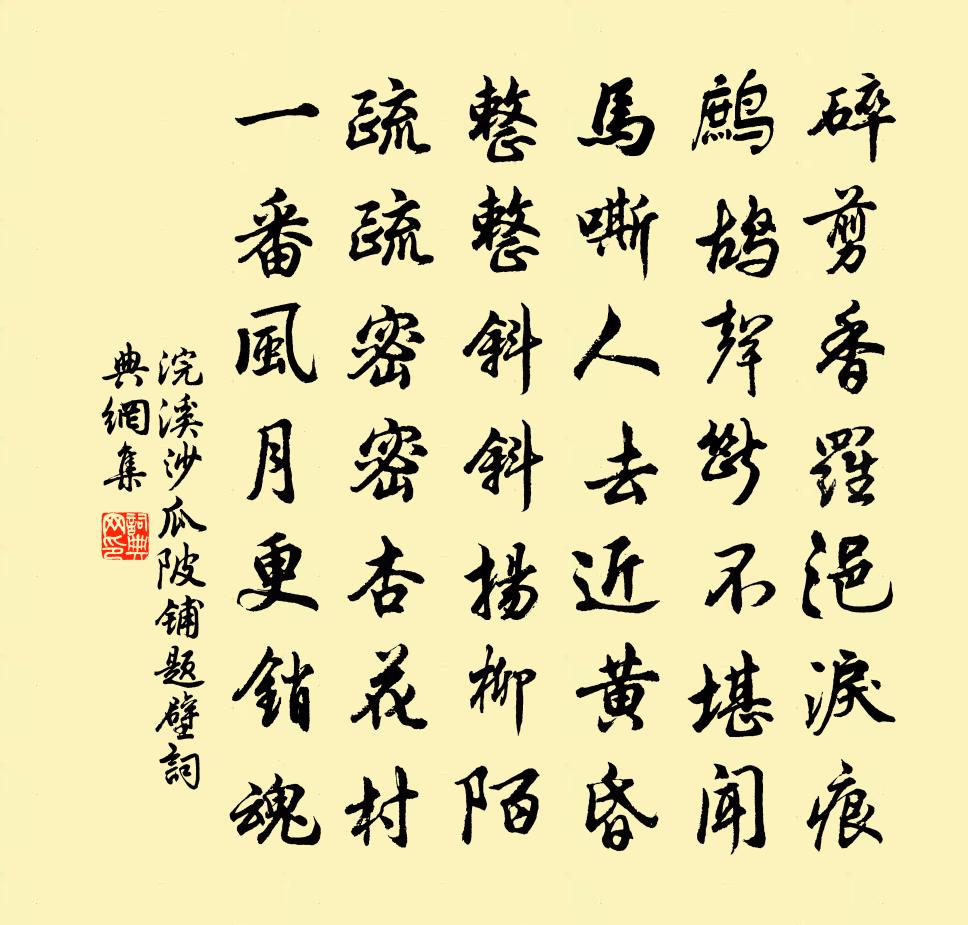 碎剪香羅浥淚痕
鷓鴣聲斷不堪聞
馬嘶人去近黃昏
整整斜斜揚柳陌
疏疏密密杏花村
一番風月更銷魂
浣溪沙瓜陂鋪題壁詞
典網集
詞典網印